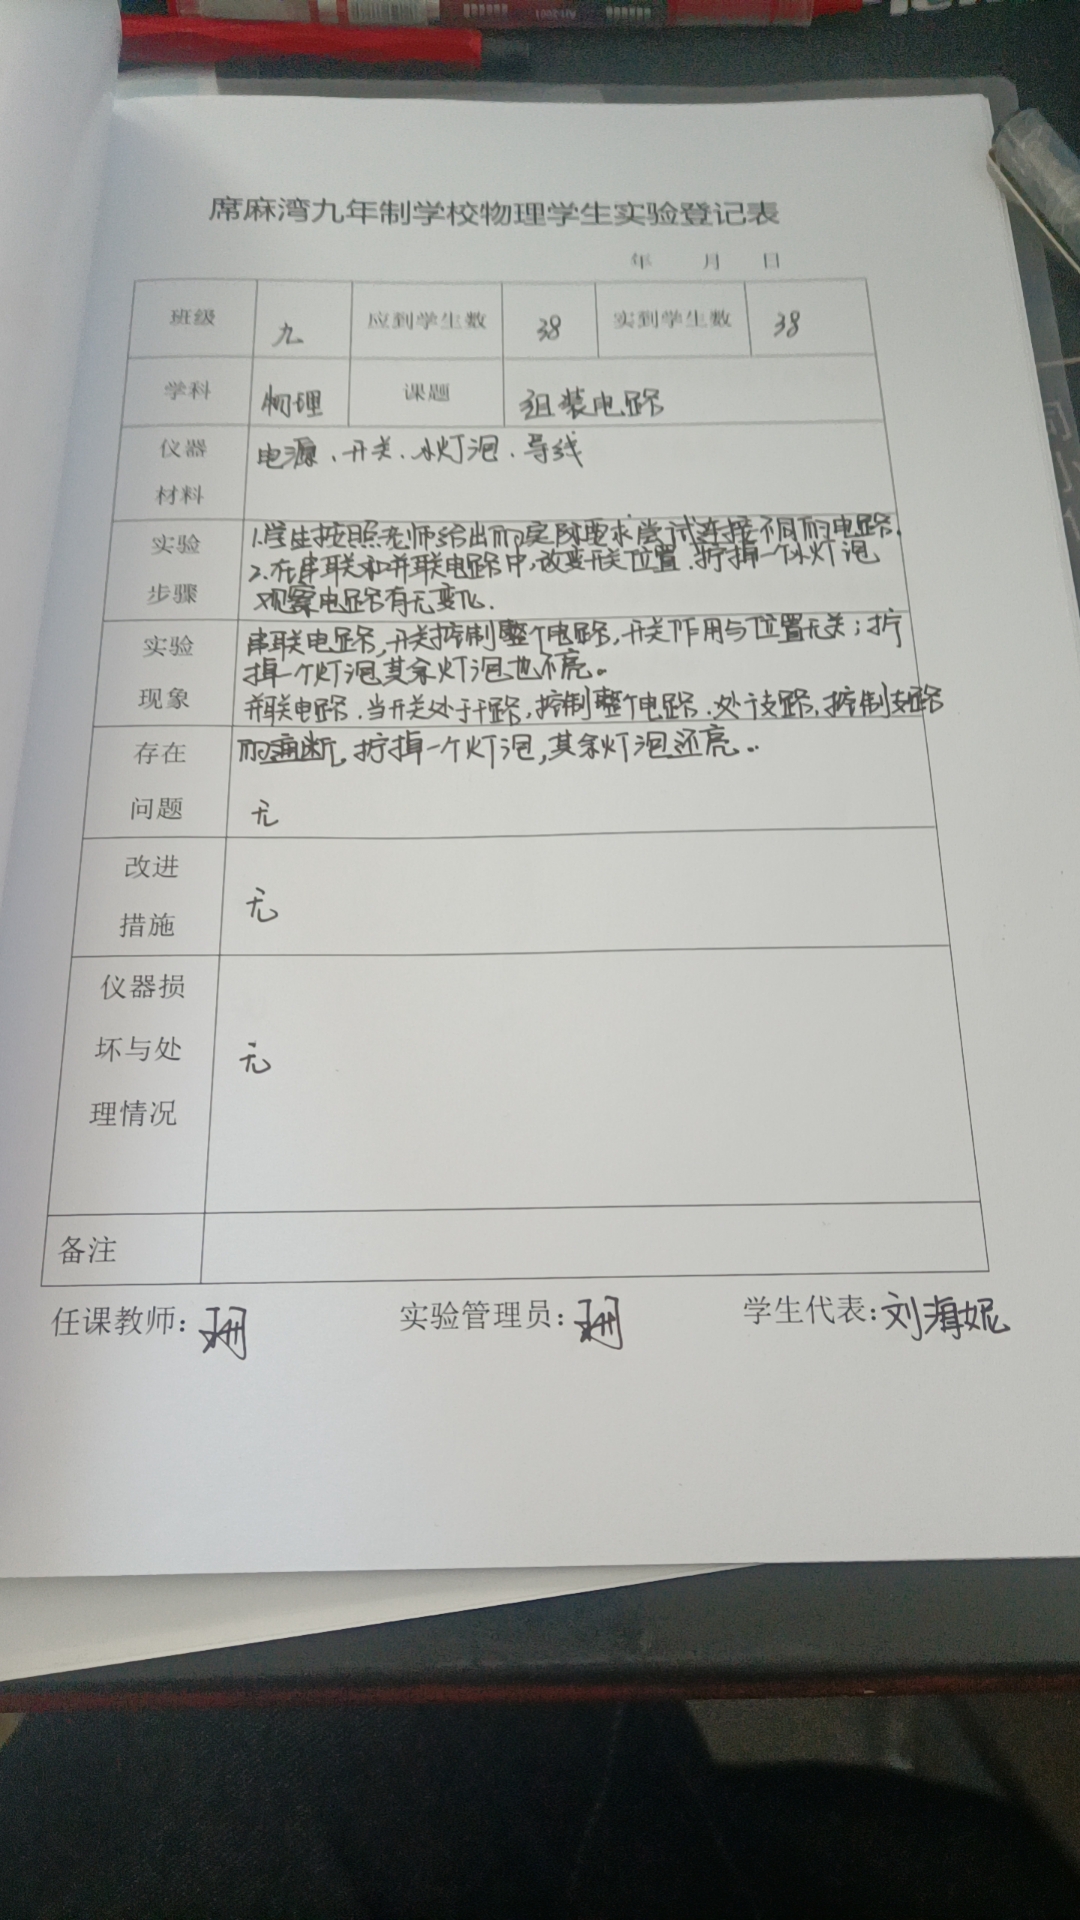 席麻湾九年制学校物理学生实验登记表
年 月 日
班级 九 应到学生数 38 实到学生数 38
学科 物理 课题 组装电路
仪器材料 电源、开关、小灯泡、导线
实验步骤
1.学生按照老师给出的实际要求尝试连接不同的电路.
2.在串联和并联电路中,改变开关位置.拧掉一个小灯泡
观察电路有无变化.
实验现象
串联电路,开关控制整个电路,开关作用与位置无关;拧
掉一个灯泡其余灯泡也不亮。
并联电路.当开关处于干路,控制整个电路.处于支路,控制支路
的通断,拧掉一个灯泡,其余灯泡还亮..
存在问题 无
改进措施 无
仪器损坏与处理情况 无
备注
任课教师: 实验管理员: 学生代表:刘海妮